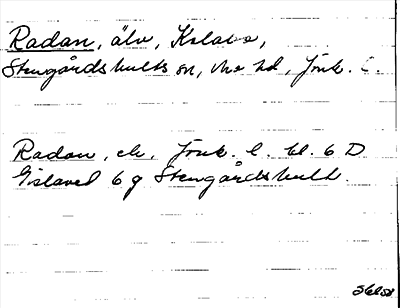 Radan, älv, Kulla
Stengårdshults sn, Mo hd, Jönk. l.
Radan, ek. Jönk. l. bl. 6 D
Gislaved 6 g Stengårdshult.